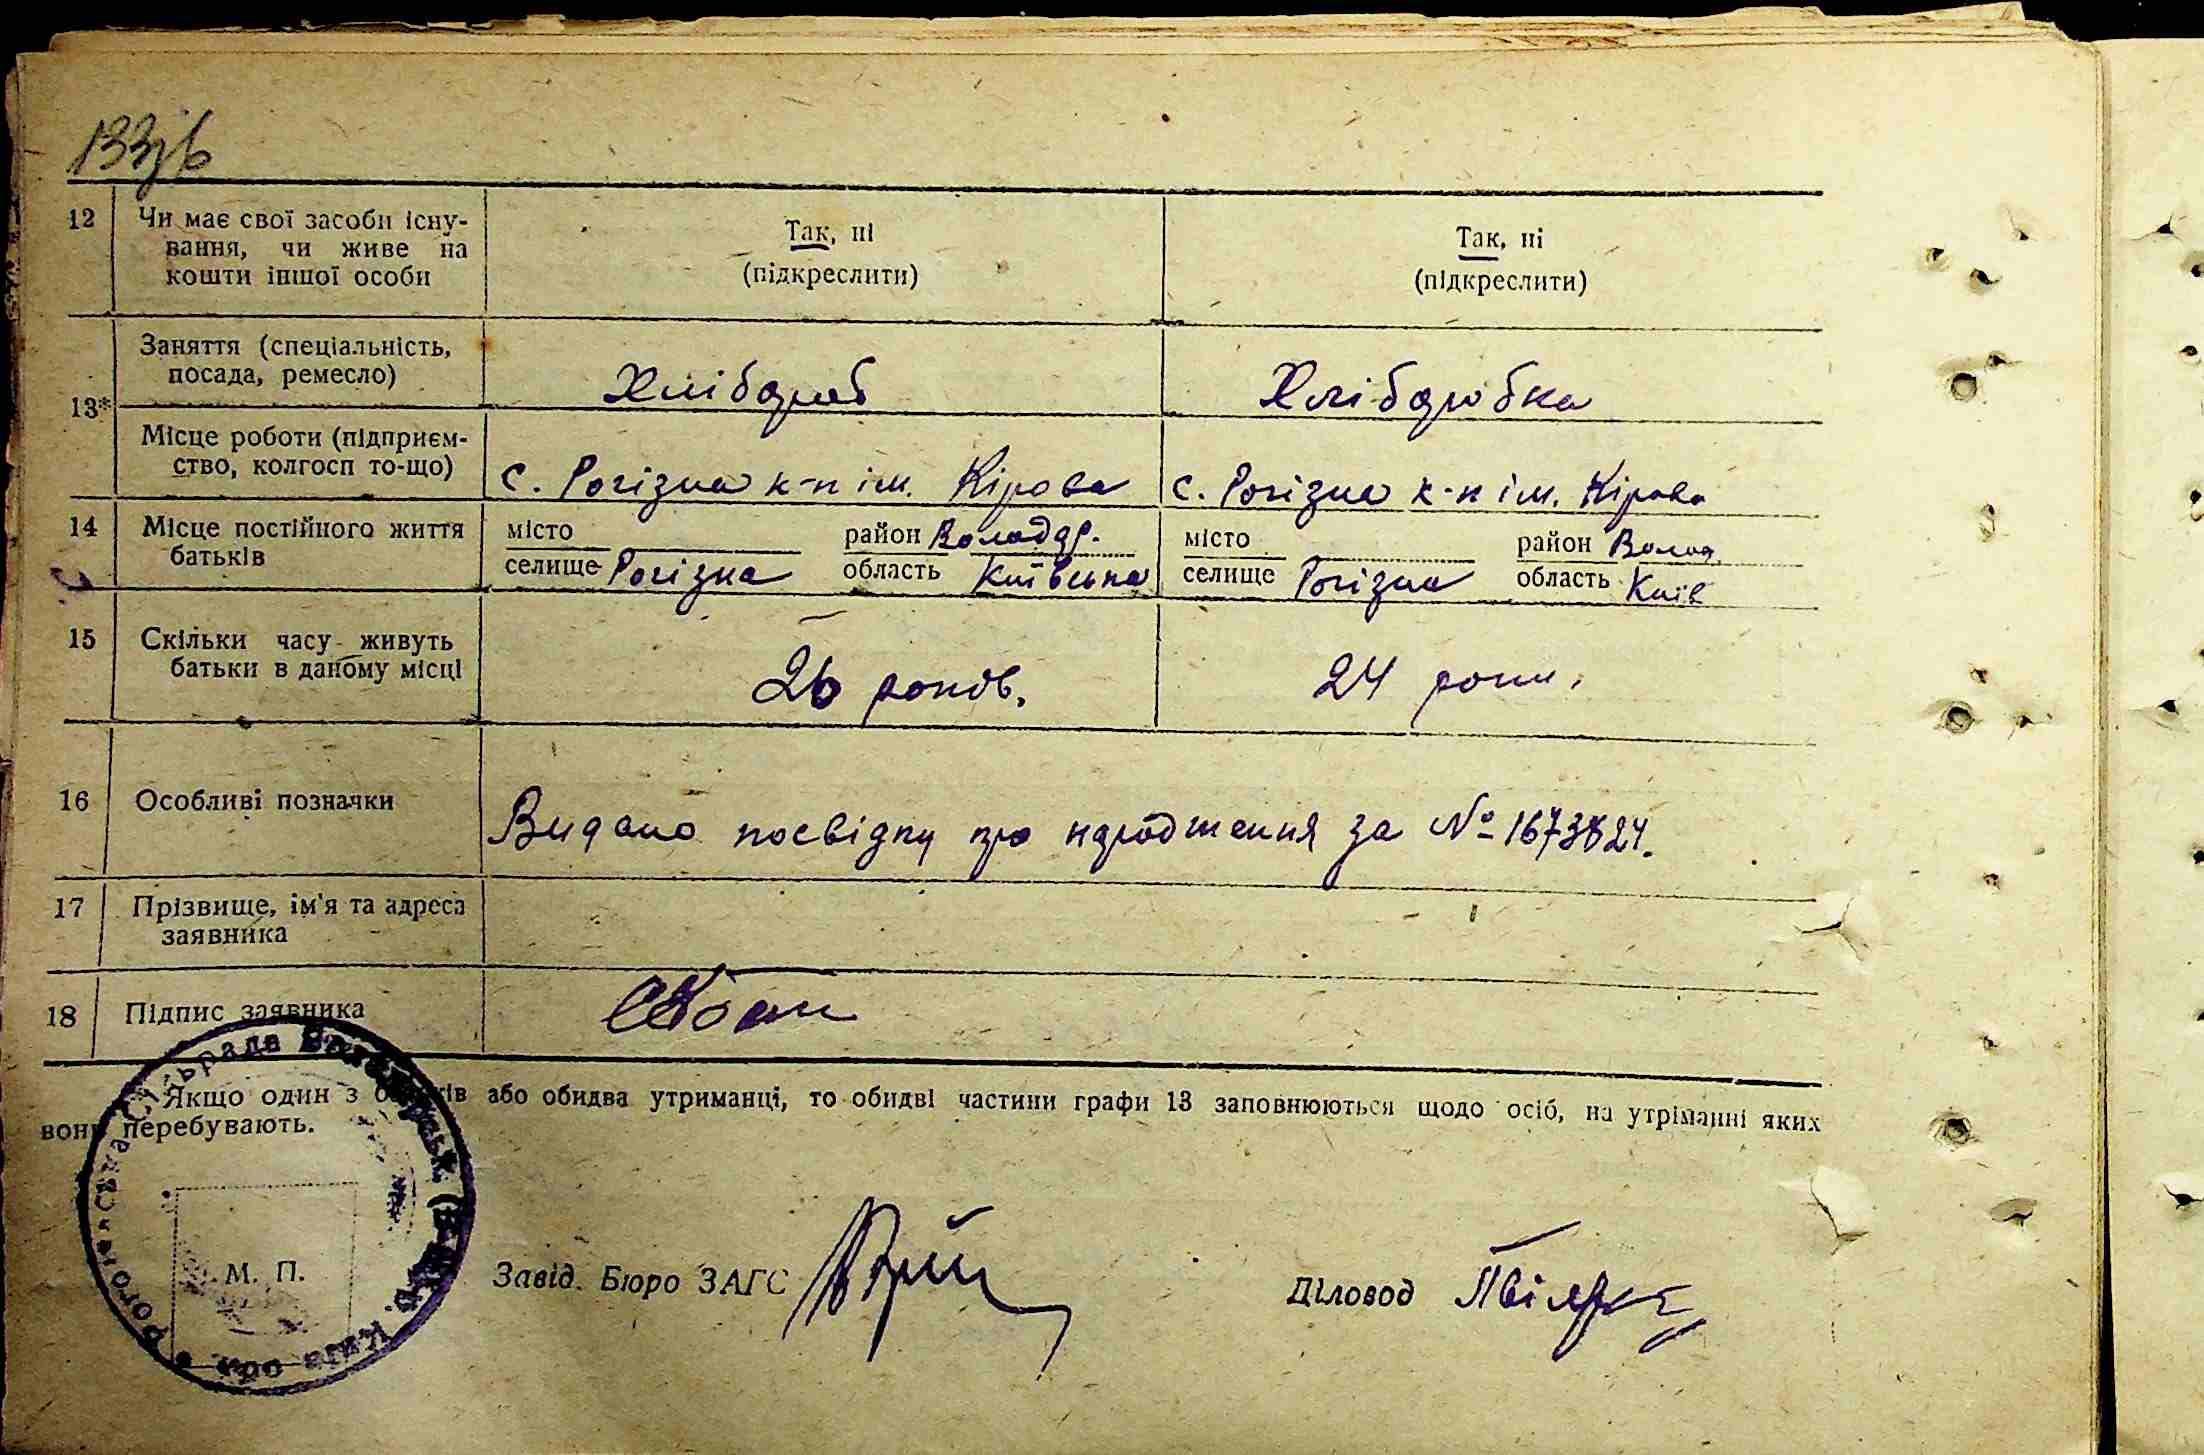 133зв
12 Чи має свої засоби існу-
вання, чи живе на
кошти іншої особи
Так, ні
(підкреслити)
Так, ні
(підкреслити)
13*
Заняття (спеціальність,
посада, ремесло)
Хлібороб
Хліборобка
Місце роботи (підприєм-
ство, колгосп то-що)
с. Рогізна к-п ім. Кірова
с. Рогізна к-п ім. Кірова
14 Місце постійного життя
батьків
місто
район Володар.
селище Рогізна
область Київська
місто
район Волод.
селище Рогізна
область Київ
15 Скільки часу живуть
батьки в даному місці
26 років.
24 роки.
16 Особливі позначки
Видано посвідку про народження за № 1673824.
17 Прізвище, ім'я та адреса
заявника
18 Підпис заявника
Якщо один з батьків або обидва утриманці, то обидві частини графи 13 заповнюються щодо осіб, на утріманні яких
вони перебувають.
М. П.
Завід. Бюро ЗАГС
Діловод